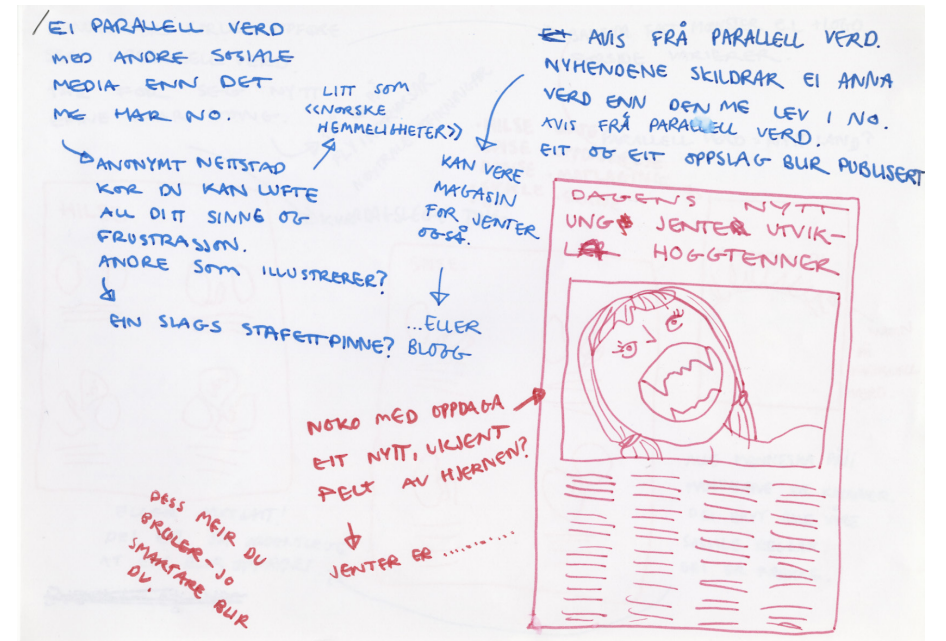 EI PARALLELL VERD
MED ANDRE SOSIALE
MEDIA ENN DET
ME HAR NO.
ANONYMT NETTSTAD
KOR DU KAN LUFTE
ALL DITT SINNE OG
FRUSTRASJON.
ANDRE SOM ILLUSTRERER?
EIN SLAGS STAFETTPINNE?
LITT SOM
«NORSKE
HEMMELIGHETER»
AVIS FRÅ PARALLELL VERD.
NYHENDENE SKILDRAR EI ANNA
VERD ENN DEN ME LEV I NO.
AVIS FRÅ PARALLELL VERD.
EIT OG EIT OPPSLAG BLIR PUBLISERT
KAN VERE
MAGASIN
FOR JENTER
OGSÅ.
...ELLER
BLOGG
DAGENS NYTT
UNGE JENTER UTVIK-
LER HOGGTENNER
NOKO MED OPPDAGA
EIT NYTT, UKJENT
FELT AV HJERNEN?
JENTER ER ..........
DESS MEIR DU
BRØLER - JO
SMARTARE BLIR
DU.